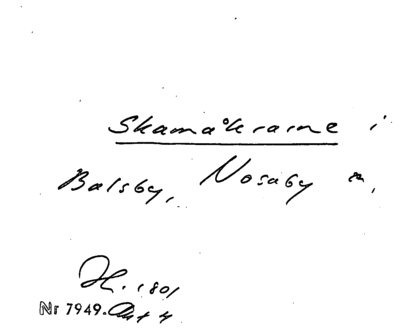 Skamåkrarne i
Balsby, Nosaby sn,
H. 1801
Nr 7949. Ant 4